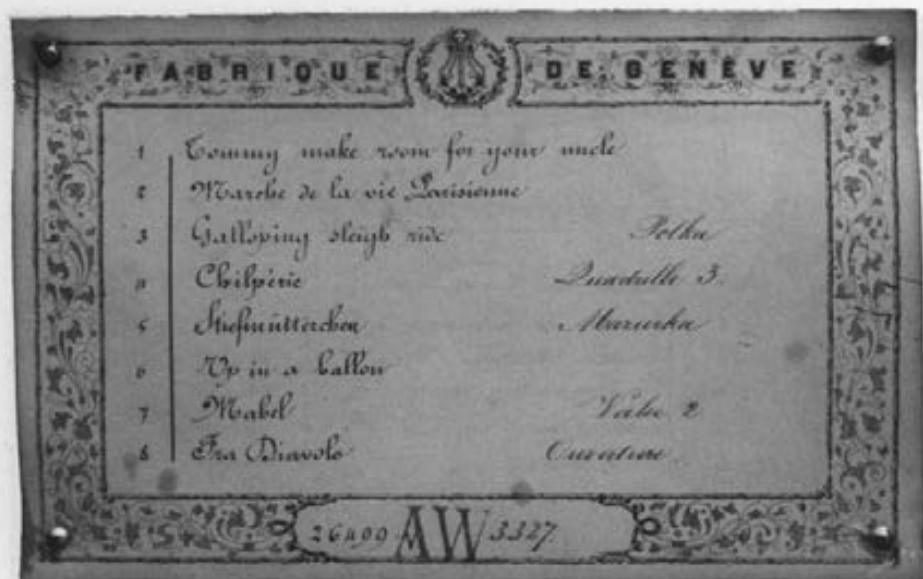 FABRIQUE DE GENÈVE
1 Tommy make room for your uncle
2 Marche de la vie Parisienne
3 Galloping sleigh ride Polka
4 Chilpéric Quadrille 3
5 Stiefmütterchen Mazurka
6 Up in a ballon
7 Mabel Valse 2
8 Fra Diavolo Ouverture
26400 AW 3327.